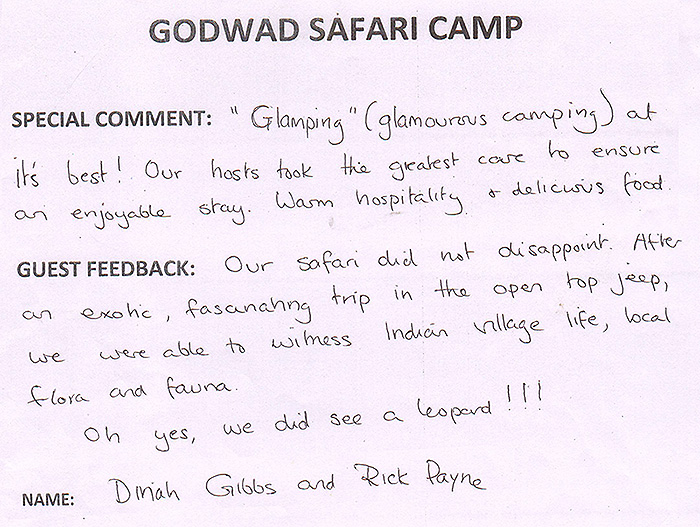 GODWAD SAFARI CAMP
SPECIAL COMMENT: "Glamping" (glamourous camping) at
it's best! Our hosts took the greatest care to ensure
an enjoyable stay. Warm hospitality & delicious food.
GUEST FEEDBACK: Our safari did not disappoint. After
an exotic, fascinating trip in the open top jeep,
we were able to witness Indian village life, local
flora and fauna.
Oh yes, we did see a leopard!!!
NAME: Dinah Gibbs and Rick Payne